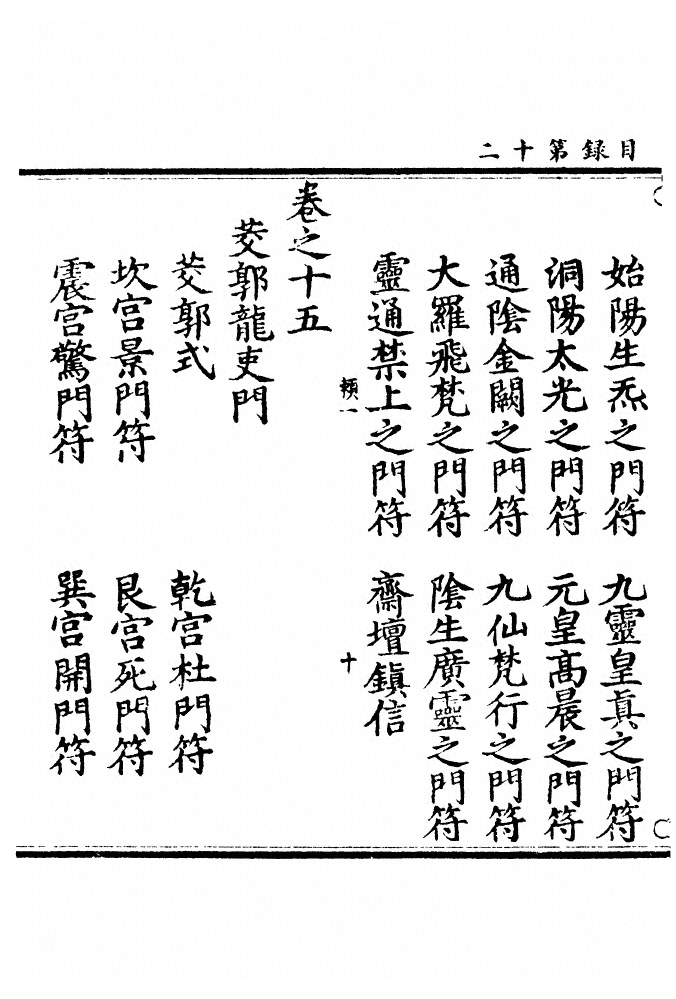 目錄第十二
始陽生炁之門符　九靈皇眞之門符
洞陽太光之門符　元皇高晨之門符
通陰金闕之門符　九仙梵行之門符
大羅飛梵之門符　陰生廣靈之門符
靈通禁上之門符　齋壇鎮信
頼一　十
卷之十五
茭郭龍吏門
茭郭式　乾宮杜門符
坎宮景門符　艮宮死門符
震宮驚門符　巽宮開門符